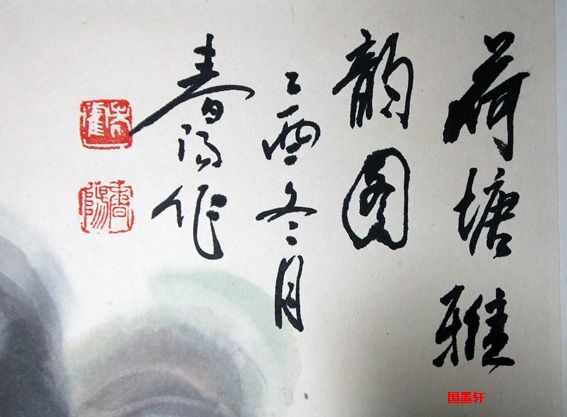 荷塘雅
韵图
乙酉冬月
春阳作
春陽
国墨轩